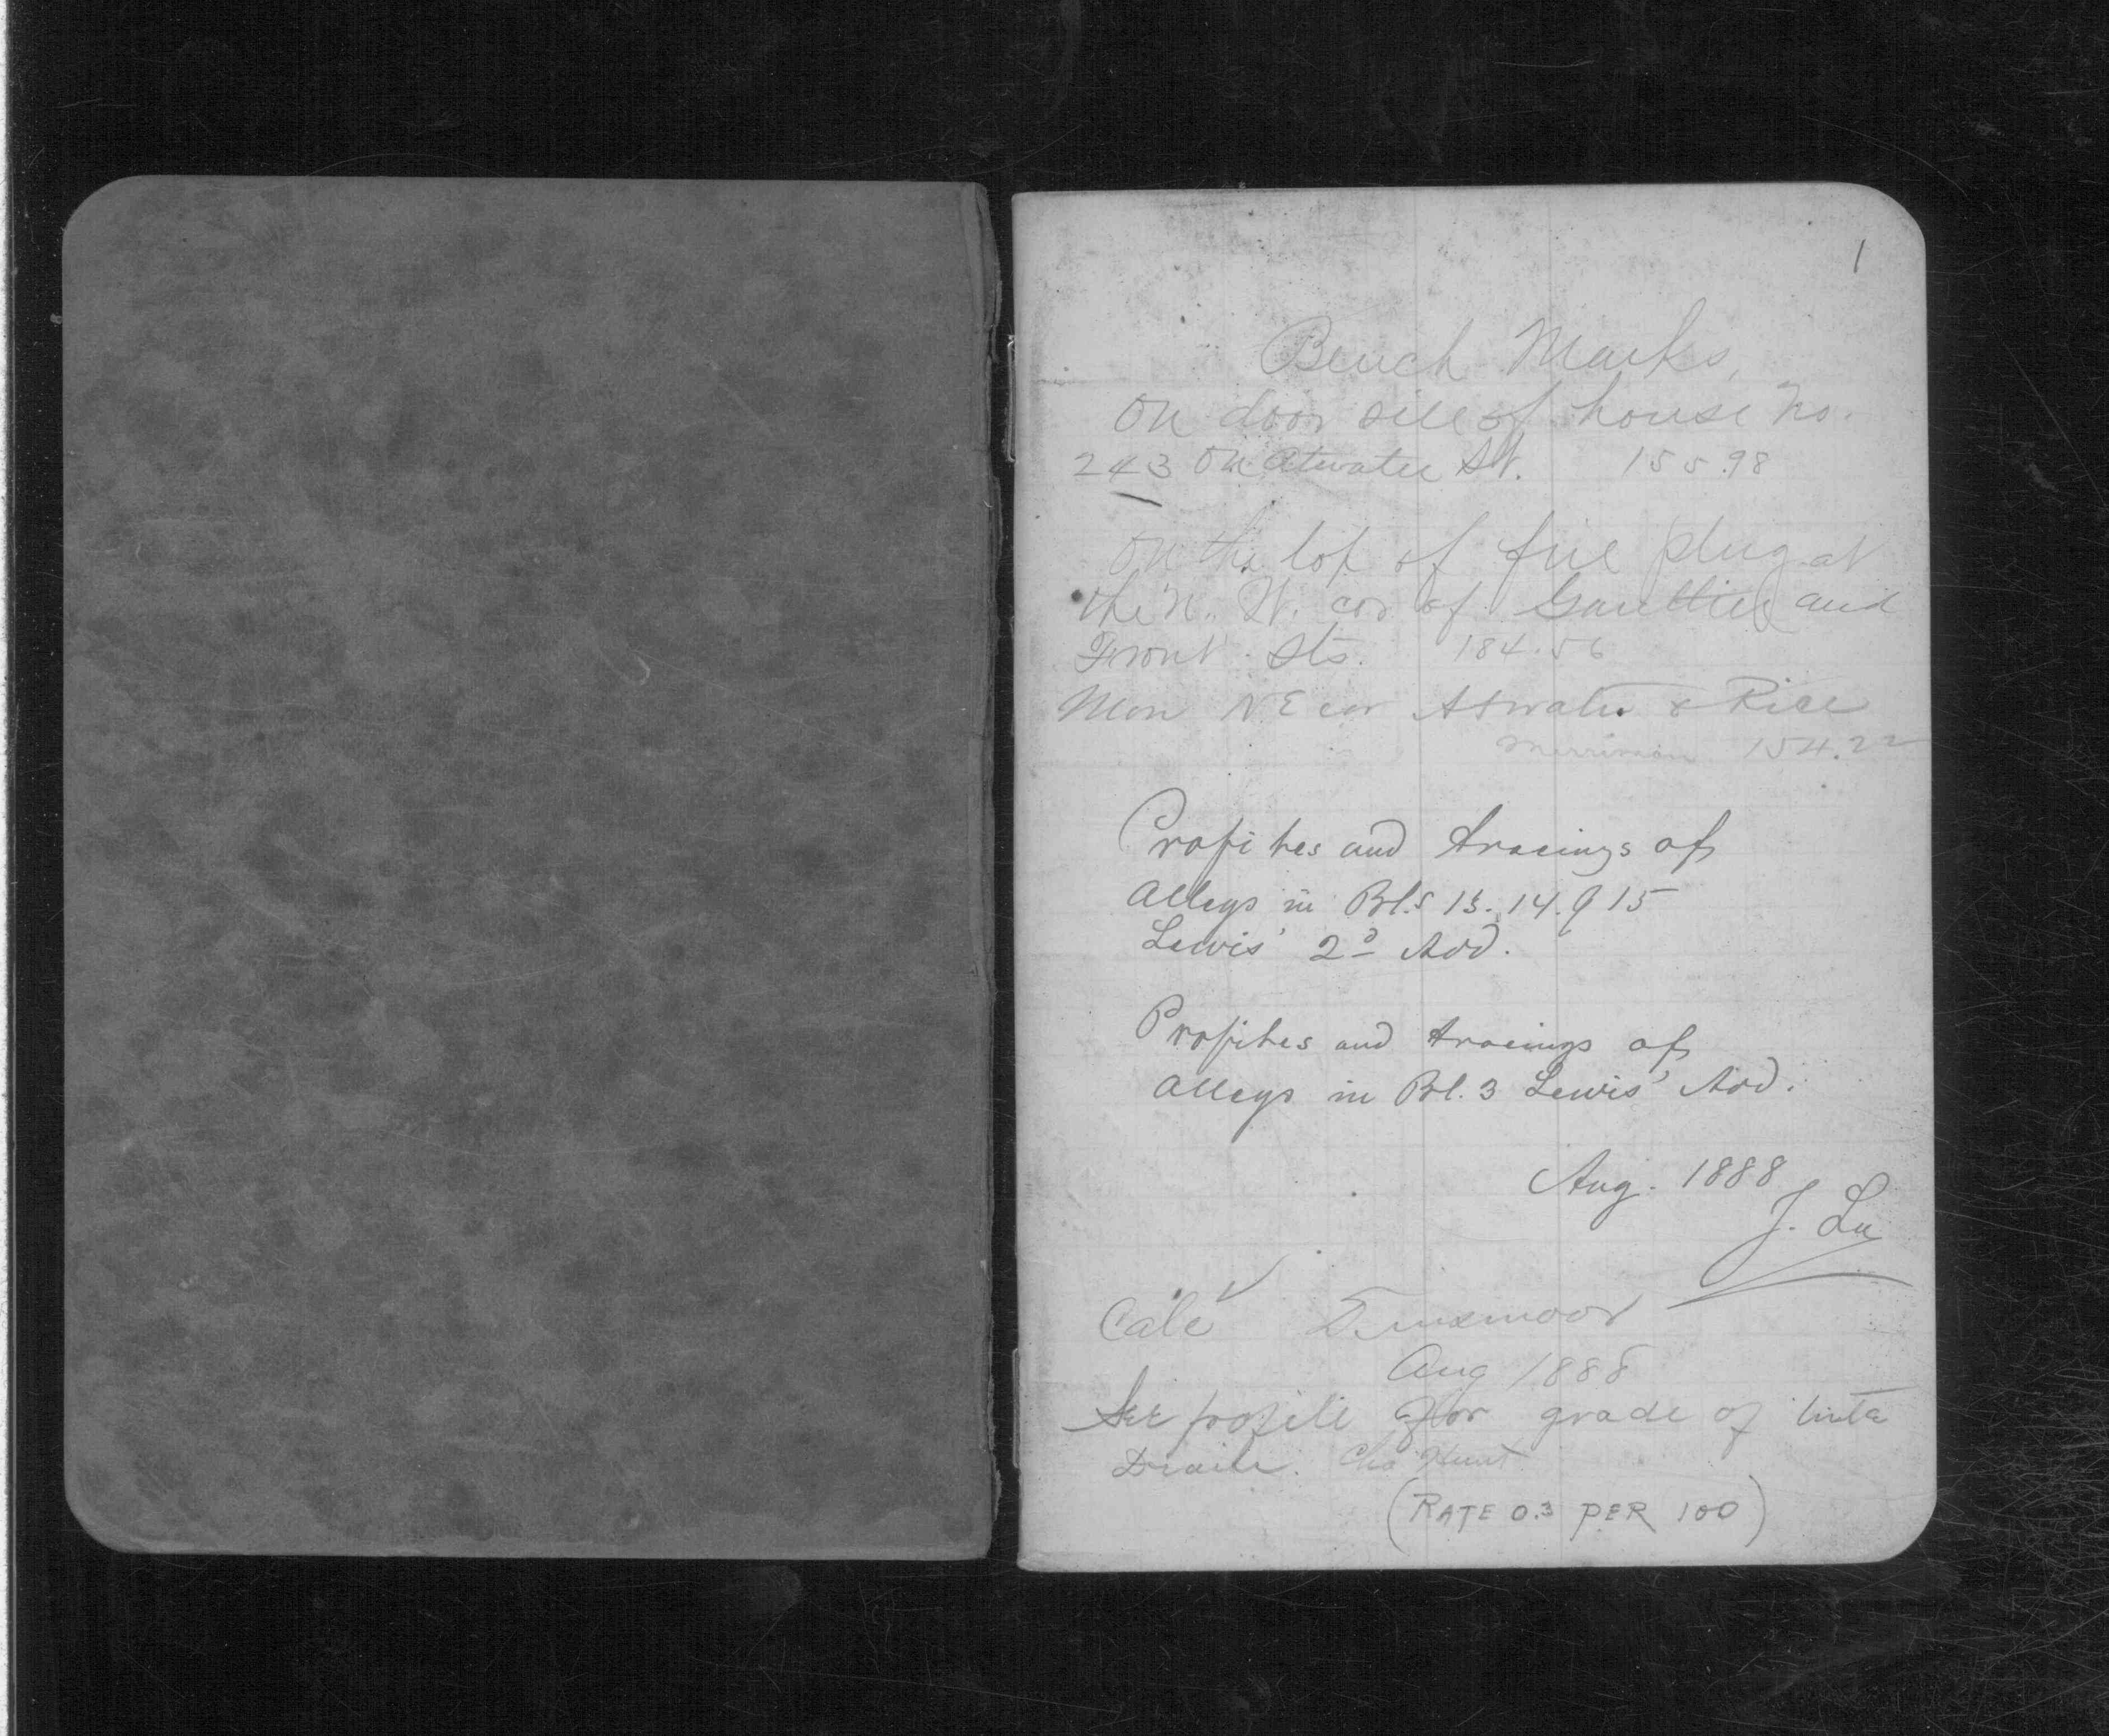 1
Bench Marks,
On door sill of house No.
243 On Atwater St. 155.98
On the top of fire plug at
the N. W. cor of and
Front Sts. 184.56
Mon NE cor Atwater & Rice
Merriman 154.22
Profiles and tracings of
Alleys in Bl.s 13. 14. & 15
Lewis' 2d Add.
Profiles and tracings of
Alleys in Bl. 3 Lewis' Add.
Aug. 1888
J. Lu
Calc Dinsmoor
Aug 1888
See profile for grade of
Drain. Chs Hunt
(RATE 0.3 PER 100)